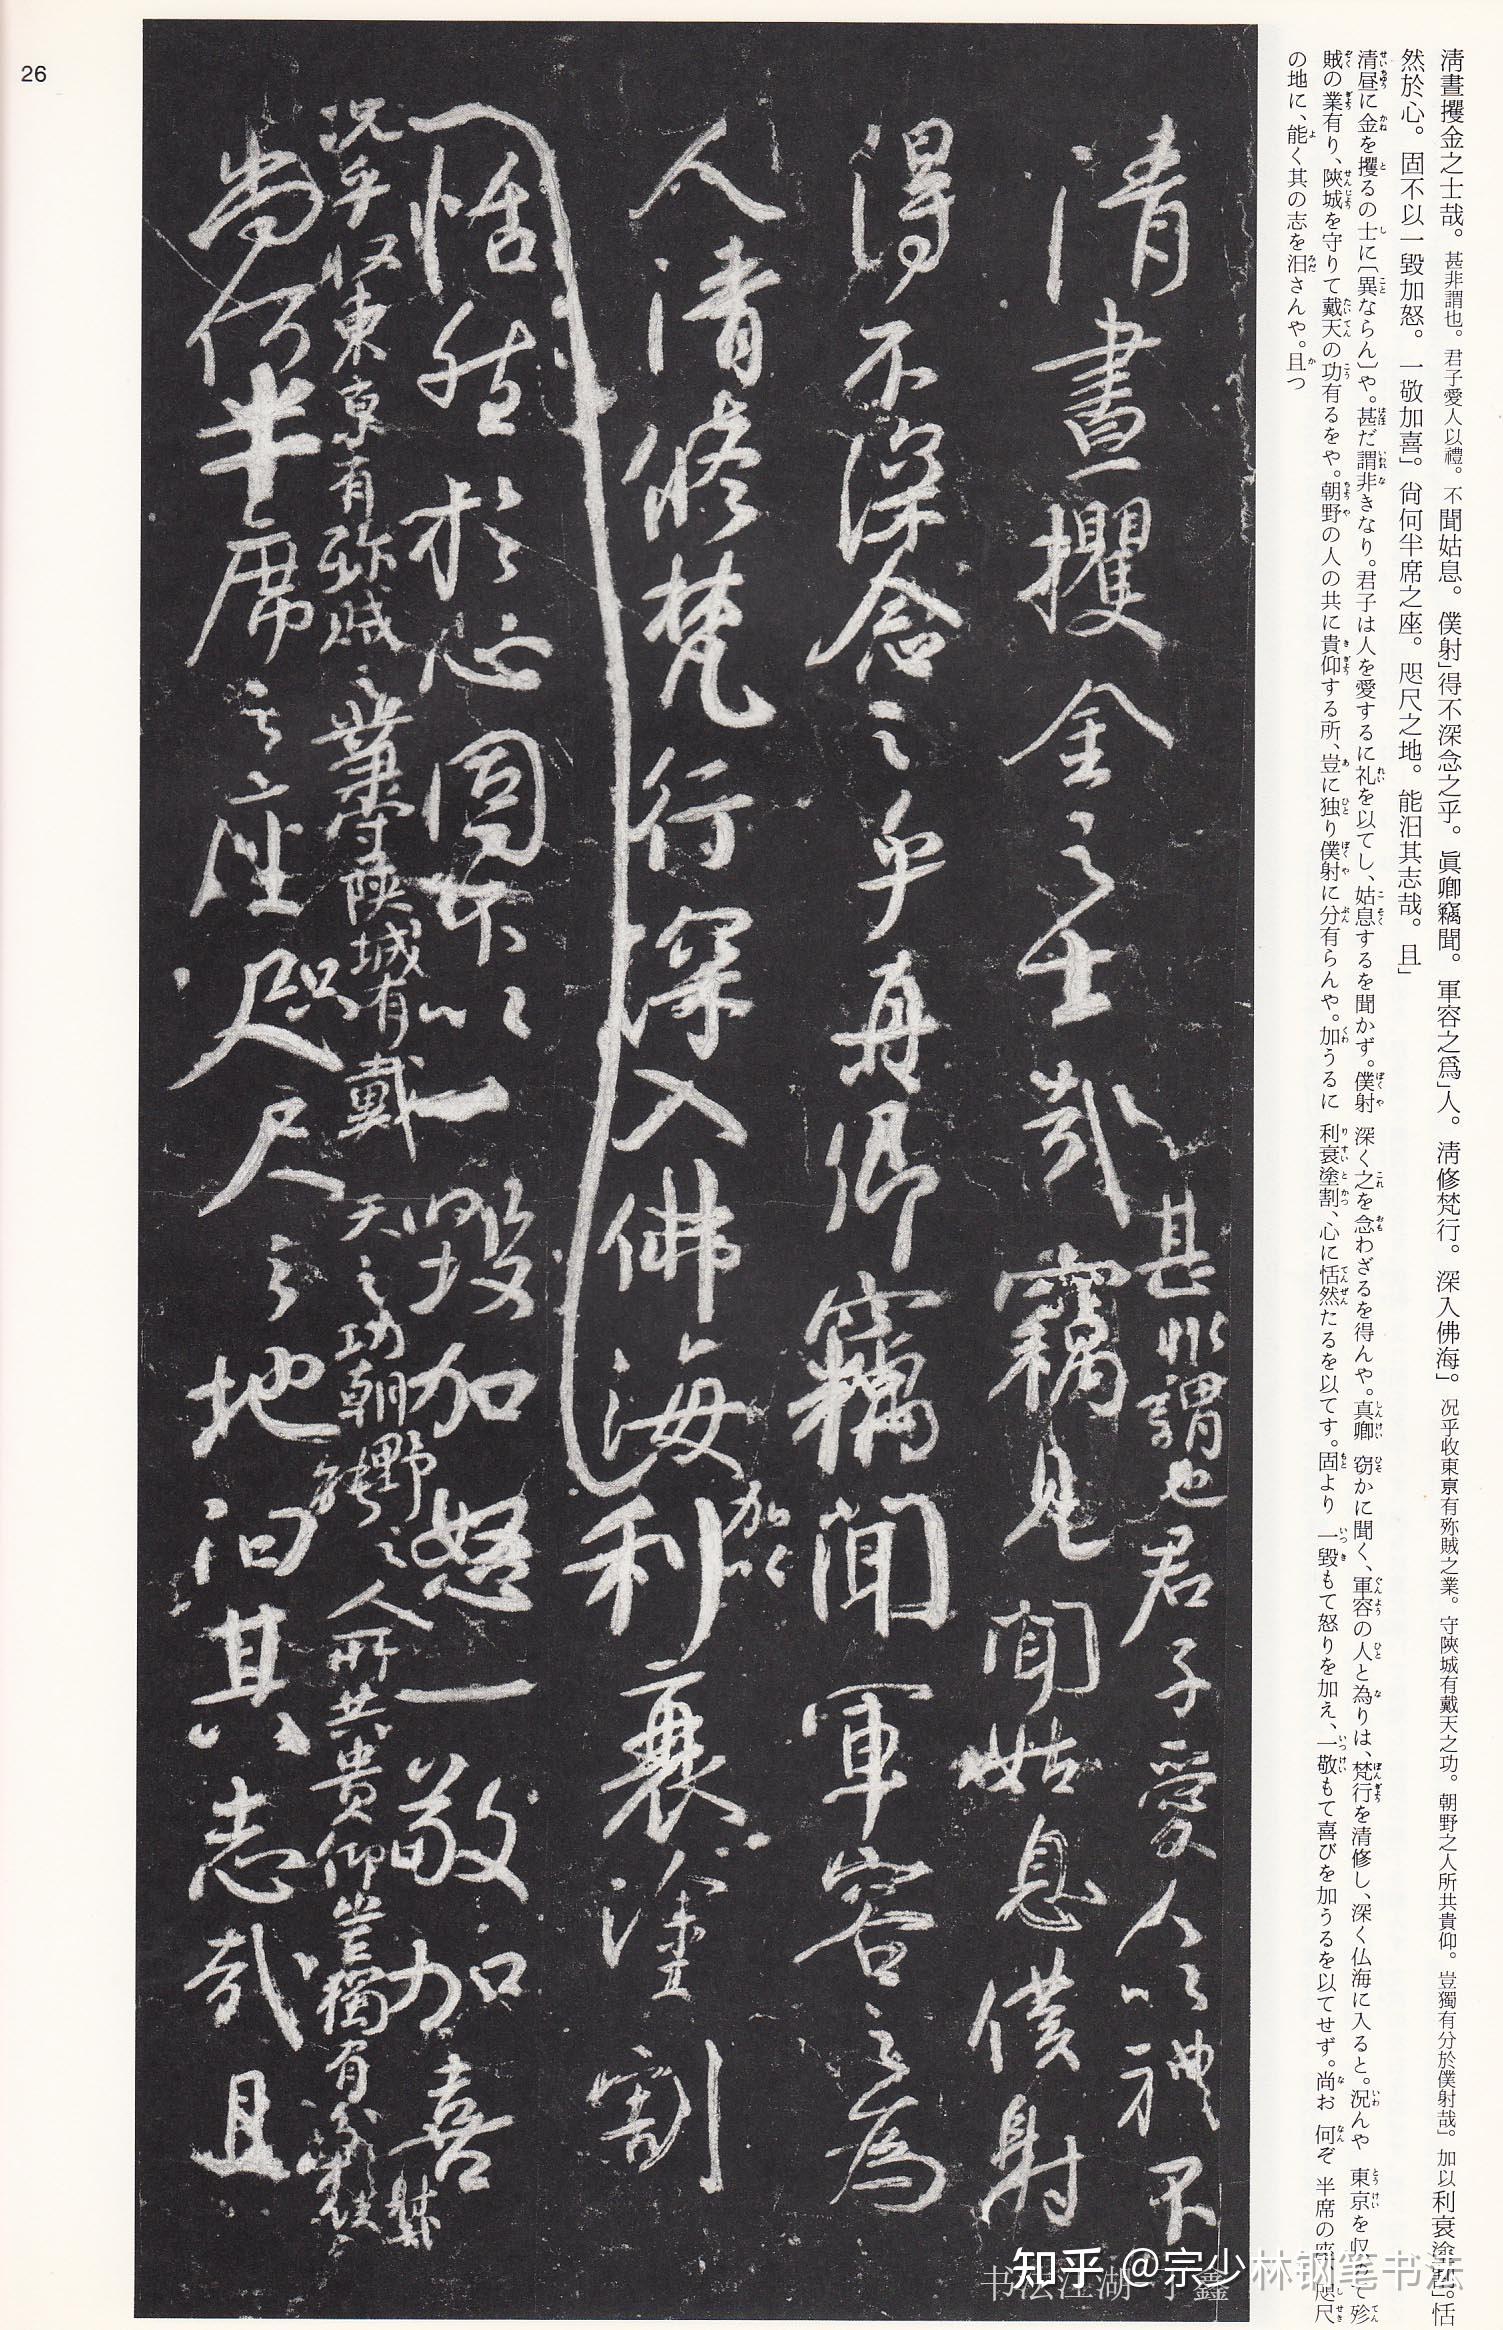 清晝攫金之士哉。甚非謂也。君子愛人以禮。不聞姑息。僕射」得不深念之乎。眞卿竊聞。軍容之爲」人。清修梵行。深入佛海」。況乎收東京有殄賊之業。守陝城有戴天之功。朝野之人所共貴仰。豈獨有分於僕射哉」。加以利衰塗割」。恬
然於心。固不以一毀加怒。一敬加喜」。尙何半席之座。咫尺之地。能汩其志哉。且」
清昼に金を攫るの士に〔異ならん〕や。甚だ謂非きなり。君子は人を愛するに礼を以てし、姑息するを聞かず。僕射 深く之を念わざるを得んや。真卿 窃かに聞く、軍容の人と為りは、梵行を清修し、深く仏海に入ると。況んや 東京を収めて殄
賊の業有り、陝城を守りて戴天の功有るをや。朝野の人の共に貴仰する所、豈に独り僕射に分有らんや。加うるに 利衰塗割、心に恬然たるを以てす。固より 一毀もて怒りを加え、一敬もて喜びを加うるを以てせず。尚お 何ぞ 半席の座、咫尺
の地に、能く其の志を汩さんや。且つ
清晝攫金之士哉
甚非謂也君子愛人以禮不
竊見聞姑息僕射
得不深念之乎真卿竊聞軍容之為
人清修梵行深入佛海
加以
利衰塗割
恬然於心固不以一毀加怒一敬加喜
況乎收東京有殄賊之業守陝城有戴天之功朝野之人所共貴仰豈獨有分於僕射哉
尚何半席之座咫尺之地能汩其志哉且
26
知乎 @宗少林钢笔书法
书法江湖 丁鑫